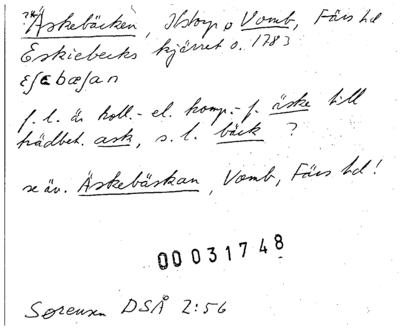 Äskebäcken, Ilstorp o Vomb, Färs hd
Eskiebecks kjärret o. 1783
ɛʃɛbæʃan
f. l. är koll.- el. komp.-f. äske till
trädbet. ask, s. l. bäck ?
se äv. Äskebäskan, Vomb, Färs hd!
00031748
Sørensen DSÅ 2:56